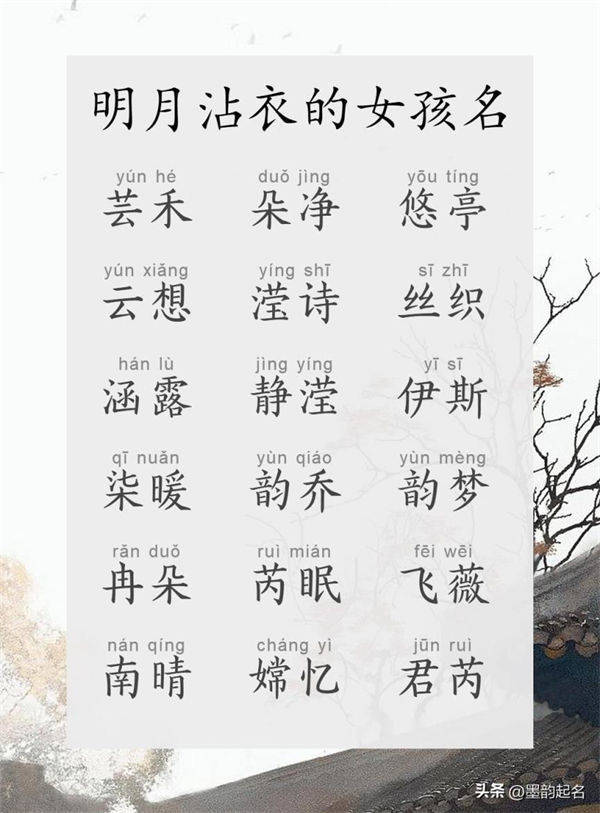 明月沾衣的女孩名
yún hé duǒ jìng yōu tíng
芸禾 朵净 悠亭
yún xiǎng yíng shī sī zhī
云想 滢诗 丝织
hán lù jìng yíng yī sī
涵露 静滢 伊斯
qī nuǎn yùn qiáo yùn mèng
柒暖 韵乔 韵梦
rǎn duǒ ruì mián fēi wēi
冉朵 芮眠 飞薇
nán qíng cháng yì jūn ruì
南晴 嫦忆 君芮
头条 @墨韵起名